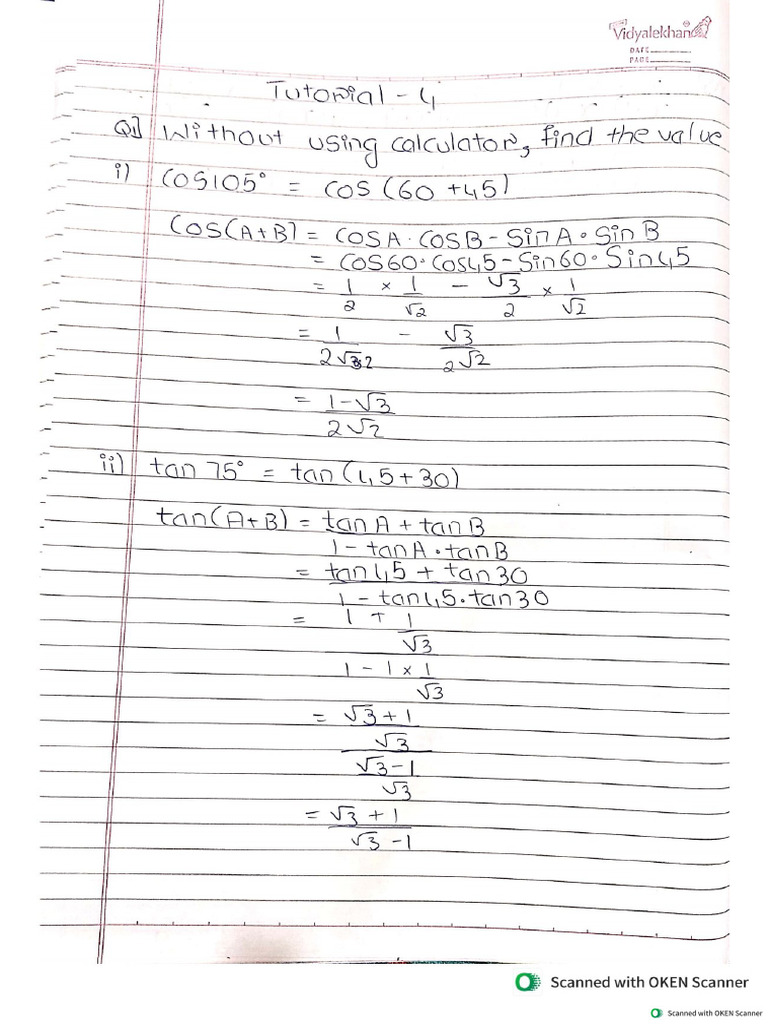 Vidyalekhan
DATE
PAGE
Tutorial - 4
Q1) Without using calculator, find the value
i) cos105° = cos (60 + 45)
cos(A+B) = cosA · cosB - sinA · sinB
= cos60 · cos45 - sin60 · sin45
= 1/2 × 1/√2 - √3/2 × 1/√2
= 1/2√2 - √3/2√2
= 1-√3/2√2
ii) tan 75° = tan (45 + 30)
tan(A+B) = tanA + tanB
1 - tanA · tanB
= tan45 + tan30
1 - tan45 · tan30
= 1 + 1/√3
1 - 1 × 1/√3
= √3 + 1
√3
√3 - 1
√3
= √3 + 1
√3 - 1
Scanned with OKEN Scanner
Scanned with OKEN Scanner